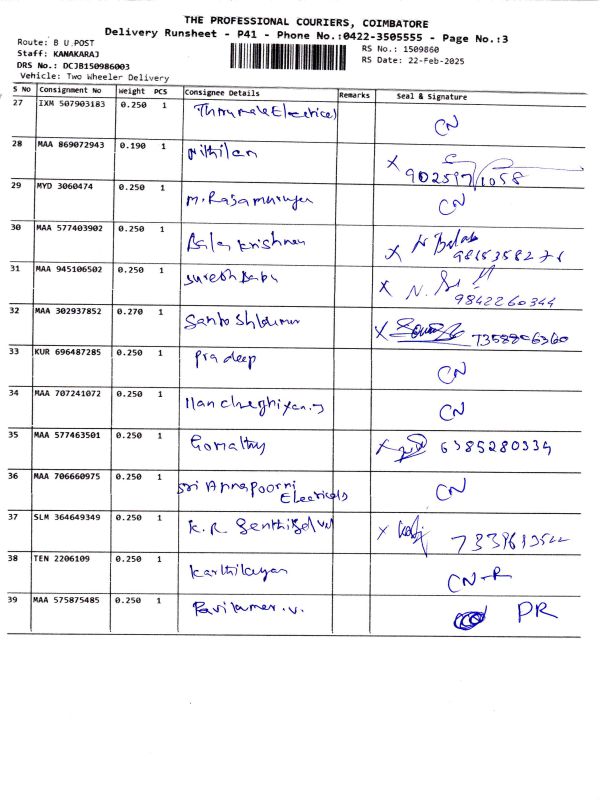 THE PROFESSIONAL COURIERS, COIMBATORE
Delivery Runsheet - P41 - Phone No.:0422-3505555 - Page No.:3
Route: B U POST
Staff: KANAKARAJ
DRS No.: DCJB150986003
Vehicle: Two Wheeler Delivery
RS No.: 1509860
RS Date: 22-Feb-2025
S No Consignment No Weight PCS Consignee Details Remarks Seal & Signature
27 IXM 507903183 0.250 1 CN
28 MAA 869072943 0.190 1 Nithilan X
29 MYD 3060474 0.250 1 CN
30 MAA 577403902 0.250 1 Bala Krishnan X
31 MAA 945106502 0.250 1 Suresh Babu X N. 9842260344
32 MAA 302937852 0.270 1 X 7358806360
33 KUR 696487285 0.250 1 Pradeep CN
34 MAA 707241072 0.250 1 CN
35 MAA 577463501 0.250 1 Gomathy X 6385280334
36 MAA 706660975 0.250 1 Sri Annapoorni Electricals CN
37 SLM 364649349 0.250 1 K.R. Senthil X
38 TEN 2206109 0.250 1 Karthikeyan CN-R
39 MAA 575875485 0.250 1 Ravikumar.v. PR